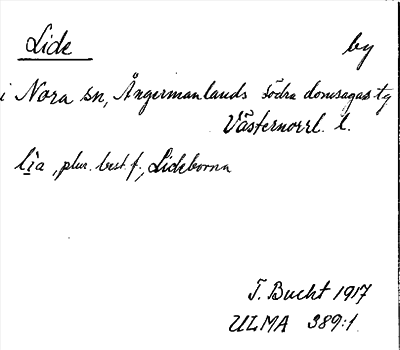 Lide by
i Nora sn, Ångermanlands södra domsagas tg
Västernorrl. l.
lìa, plur. best. f., Lideborna
T. Bucht 1917
ULMA 389:1